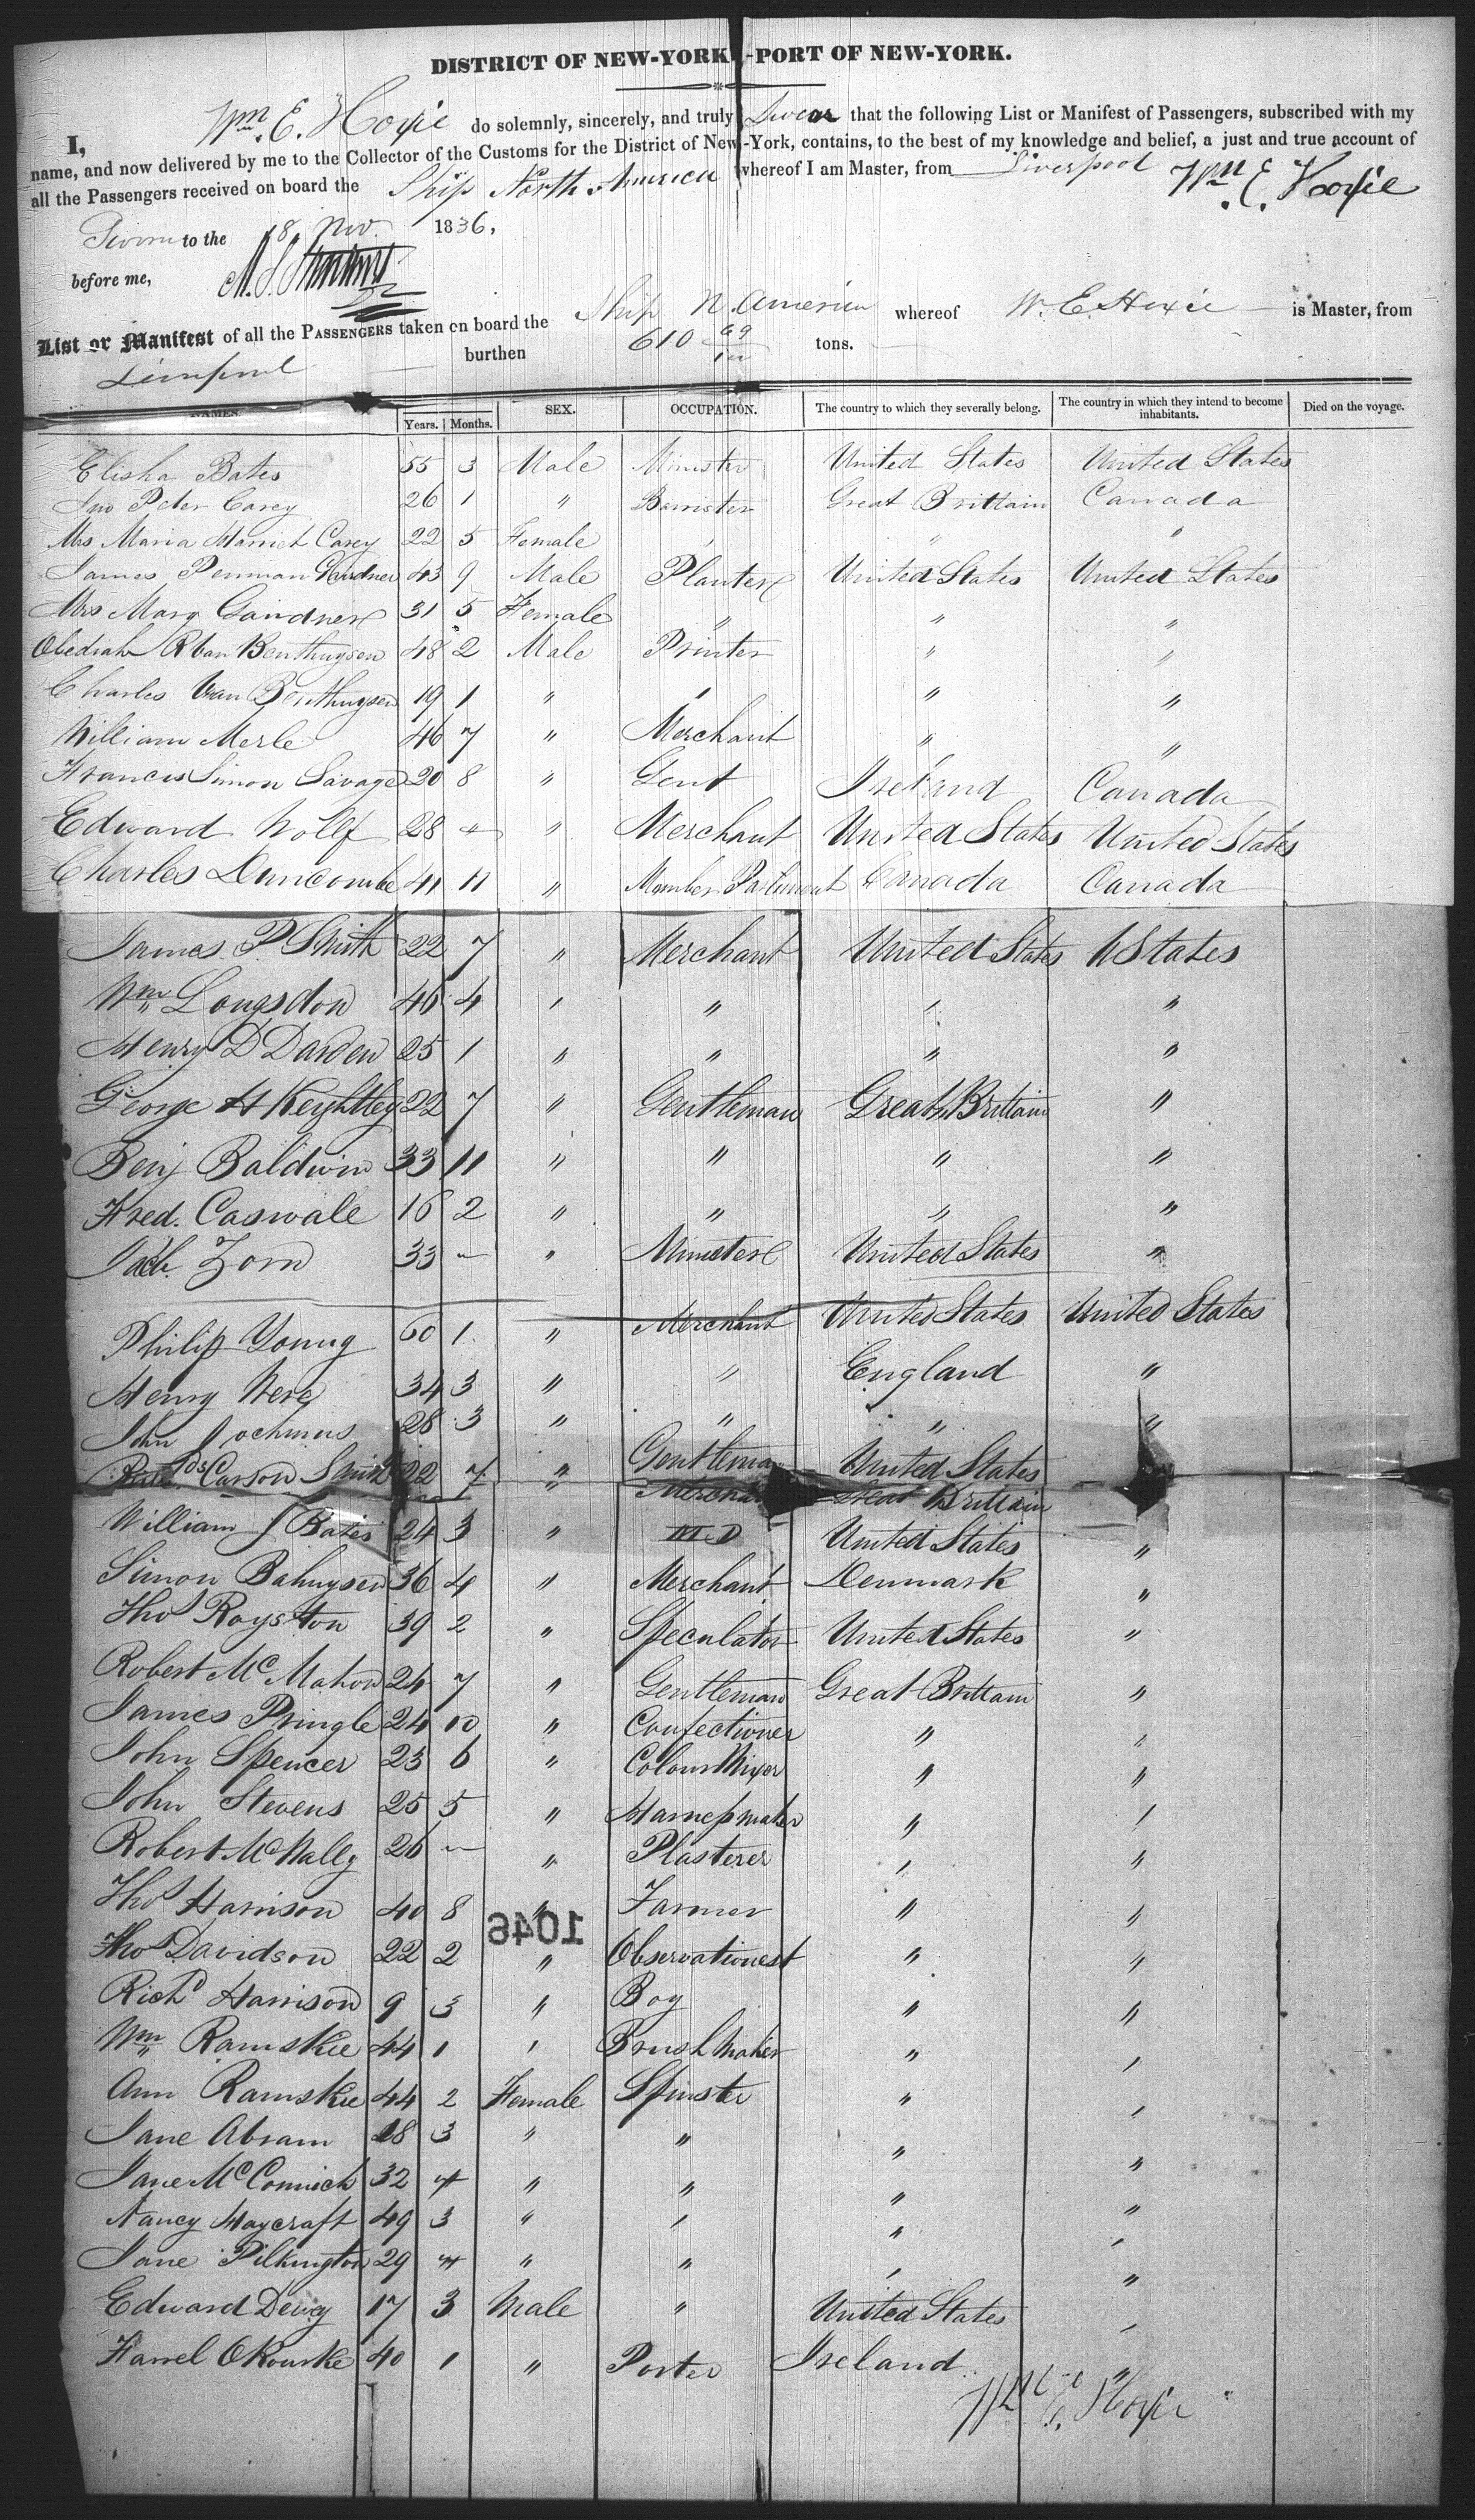 DISTRICT OF NEW-YORK-PORT OF NEW-YORK.
I, Wm. E. Hoxie do solemnly, sincerely, and truly Swear that the following List or Manifest of Passengers, subscribed with my
name, and now delivered by me to the Collector of the Customs for the District of New-York, contains, to the best of my knowledge and belief, a just and true account of
all the Passengers received on board the Ship North America whereof I am Master, from Liverpool Wm. E. Hoxie
to the 18 Nov. 1836,
before me,
List or Manifest of all the PASSENGERS taken on board the Ship N. America whereof W. E. Hoxie is Master, from
Liverpool burthen 610 tons.
NAMES. Years. Months. SEX. OCCUPATION. The country to which they severally belong. The country in which they intend to become inhabitants. Died on the voyage.
Elisha Bates 55 3 Male Minister United States United States
Jno Peter Carey 26 1 " Barrister Great Brittain Canada
Mrs Maria Harriet Carey 22 5 Female " "
James Penman Gairdner 43 9 Male Planter United States United States
Mrs Mary Gairdner 31 5 Female " " "
Obediah R van Benthuysen 48 2 Male Printer " "
Charles Van Benthuysen 19 1 " " " "
William Merle 46 7 " Merchant " "
Francis Simon Savage 20 8 " Gent Ireland Canada
Edward Wolff 28 " Merchant United States United States
Charles Duncombe 41 11 " Member Parliment Canada Canada
James P. Smith 22 7 " Merchant United States U States
Wm Longsdon 46 4 " " " "
Henry D Darden 25 1 " " " "
George H Keightley 22 7 " Gentleman Great Brittain "
Benj Baldwin 33 11 " " " "
Fred. Caswale 16 2 " " " "
Jacb. Zorn 33 - " Minister United States "
Philip Young 60 1 " Merchant United States United States
Henry Were 34 3 " " England "
John Jochmus 28 3 " " " "
Carson Smith 22 7 " Gentleman United States
" Merchant Great Brittain
William J Bates 24 3 " M D United States "
Simon Bahuysen 36 4 " Merchant Denmark "
Thos Royston 39 2 " Speculator United States "
Robert McMahon 24 7 " Gentleman Great Brittain "
James Pringle 24 10 " Confectioner " "
John Spencer 23 6 " Colour Mixer " "
John Stevens 25 5 " Harness maker " "
Robert McNally 26 - " Plasterer " "
Thos Harrison 40 8 " Farmer " "
1046
Thos Davidson 22 2 " Observationest " "
Richd Harrison 9 3 " Boy " "
Wm Ramskie 44 1 " Brush Maker " "
Ann Ramskie 44 2 Female Spinster " "
Jane Abram 18 3 " " " "
Jane McCormick 32 4 " " " "
Nancy Haycraft 49 3 " " " "
Jane Pilkington 29 4 " " " "
Edward Dewey 17 3 Male " United States "
Farrel O Rourke 40 1 " Porter Ireland "
Wm E. Hoxie